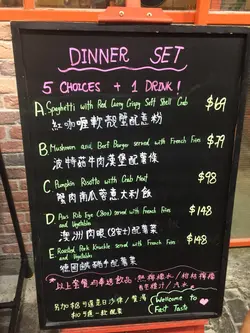 DINNER SET
5 CHOICES + 1 DRINK!
A. Spaghetti with Red Curry Crispy Soft Shell Crab $69
紅咖喱軟殼蟹配意粉
B. Mushroom and Beef Burger served with French Fries $79
波特菇牛肉漢堡配薯條
C. Pumpkin Risotto with Crab Meat $98
蟹肉南瓜蓉意大利飯
D. Aus Rib Eye (8oz) served with French Fries and Vegetables $148
澳洲肉眼(8安士)配薯菜
E. Roasted Pork Knuckle served with French Fries and Vegetables $148
德國鹹豬手配薯菜
以上套餐均奉送飲品
另加$8可選是日沙律/餐湯
$10可選一款凍飲
Welcome to Fast Taste